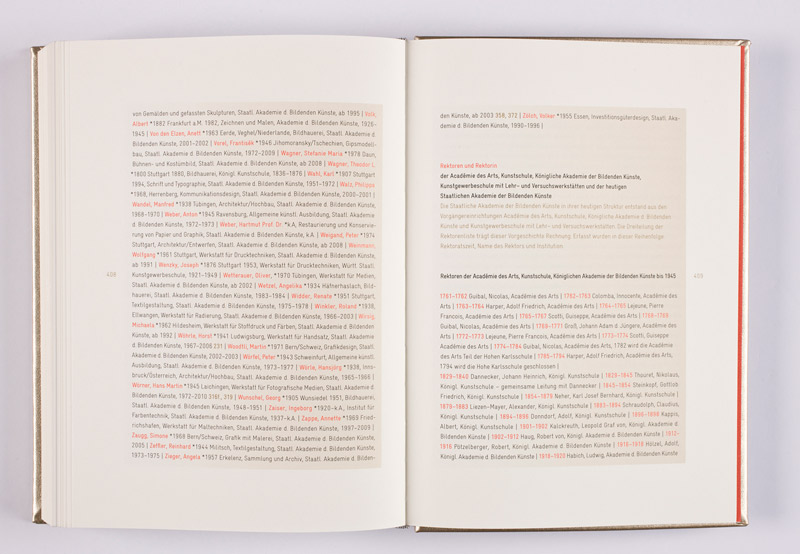 von Gemälden und gefassten Skulpturen, Staatl. Akademie d. Bildenden Künste, ab 1995 | Volk,
Albert *1882 Frankfurt a.M. 1982, Zeichnen und Malen, Akademie d. Bildenden Künste, 1926–
1945 | Von den Eizen, Anaft *1963 Eerde, Veghel/Niederlande, Bildhauerei, Staatl. Akademie d.
Bildenden Künste, 2001–2002 | Vorel, František *1946 Jihomoransky/Tschechien, Gipsmodell-
bau, Staatl. Akademie d. Bildenden Künste, 1972–2009 | Wagner, Stefanie Maria *1978 Daun,
Bühnen- und Kostümbild, Staatl. Akademie d. Bildenden Künste, ab 2008 | Wagner, Theodor
*1800 Stuttgart 1880, Bildhauerei, Königl. Kunstschule, 1836–1876 | Wahl, Karl *1907 Stuttgart
1994, Schrift und Typographie, Staatl. Akademie d. Bildenden Künste, 1951–1972 | Walz, Philippe
*1968, Herrenberg, Kommunikationsdesign, Staatl. Akademie d. Bildenden Künste, 2000–2001 |
Wandel, Manfred *1938 Tübingen, Architektur/Hochbau, Staatl. Akademie d. Bildenden Künste,
1968–1970 | Weber, Anton *1945 Ravensburg, Allgemeine künstl. Ausbildung, Staatl. Akademie
d. Bildenden Künste, 1972–1973 | Weber, Hartmut Prof. Dr. *k.A, Restaurierung und Konservie-
rung von Papier und Graphik, Staatl. Akademie d. Bildenden Künste, k.A. | Weigand, Peter *1974
Stuttgart, Architektur/Entwerfen, Staatl. Akademie d. Bildenden Künste, ab 2008 | Wemmann,
Wolfgang *1961 Stuttgart, Werkstatt für Drucktechniken, Staatl. Akademie d. Bildenden Künste,
ab 1991 | Wenzky, Joseph *1876 Stuttgart 1953, Werkstatt für Drucktechniken, Württ. Staatl.
408 Kunstgewerbeschule, 1921–1949 | Wetterauer, Oliver, *1970 Tübingen, Werkstatt für Medien,
Staatl. Akademie d. Bildenden Künste, ab 2002 | Wetzel, Angelika *1934 Häfnerhaslach, Bild-
hauerei, Staatl. Akademie d. Bildenden Künste, 1983–1984 | Widder, Renate *1951 Stuttgart,
Textilgestaltung, Staatl. Akademie d. Bildenden Künste, 1975–1978 | Winkler, Roland *1938,
Ellwangen, Werkstatt für Radierung, Staatl. Akademie d. Bildenden Künste, 1966–2003 |
Michaela *1962 Hildesheim, Werkstatt für Stoffdruck und Färben, Staatl. Akademie d. Bildenden
Künste, ab 1992 | Wöhrle, Horst *1941 Ludwigsburg, Werkstatt für Handsatz, Staatl. Akademie
d. Bildenden Künste, 1967–2006 231 | Woodtli, Martin *1971 Bern/Schweiz, Grafikdesign, Staatl.
Akademie d. Bildenden Künste, 2002–2003 | Wörfel, Peter *1943 Schweinfurt, Allgemeine künstl.
Ausbildung, Staatl. Akademie d. Bildenden Künste, 1973–1977 | Wörle, Hansjörg *1938, Inns-
bruck/Österreich, Architektur/Hochbau, Staatl. Akademie d. Bildenden Künste, 1965–1966 |
Wörner, Hans Martin *1945 Leichingen, Werkstatt für Fotografische Medien, Staatl. Akademie d.
Bildenden Künste, 1972–2010 316f., 319 | Wunschel, Georg *1905 Wunsiedel 1951, Bildhauerei,
Staatl. Akademie d. Bildenden Künste, 1948–1951 | Zaiser, Ingeborg *1920–k.A., Institut für
Farbentechnik, Staatl. Akademie d. Bildenden Künste, 1937–k.A. | Zappe, Annette *1969 Fried-
richshafen, Werkstatt für Maltechniken, Staatl. Akademie d. Bildenden Künste, 1997–2009 |
Zaugg, Simone *1968 Bern/Schweiz, Grafik mit Malerei, Staatl. Akademie d. Bildenden Künste,
2005 | Zeffler, Reinhard *1944 Militsch, Textilgestaltung, Staatl. Akademie d. Bildenden Künste,
1973–1975 | Zieger, Angela *1957 Erkelenz, Sammlung und Archiv, Staatl. Akademie d. Bilden-
den Künste, ab 2003 358, 372 | Zölch, Volker *1955 Essen, Investitionsgüterdesign, Staatl. Aka-
demie d. Bildenden Künste, 1990–1996 |
Rektoren und Rektorin
der Académie des Arts, Kunstschule, Königliche Akademie der Bildenden Künste,
Kunstgewerbeschule mit Lehr- und Versuchswerkstätten und der heutigen
Staatlichen Akademie der Bildenden Künste
Die Staatliche Akademie der Bildenden Künste in ihrer heutigen Struktur entstand aus den
Vorgängereinrichtungen Académie des Arts, Kunstschule, Königliche Akademie d. Bildenden
Künste und Kunstgewerbeschule mit Lehr- und Versuchswerkstätten. Die Erstellung der
Rektorenliste trägt dieser Vorgeschichte Rechnung. Erfasst wurden in dieser Reihenfolge:
Rektoratszeit, Name des Rektors und Institution.
Rektoren der Académie des Arts, Kunstschule, Königlichen Akademie der Bildenden Künste bis 1945 409
1761–1762 Guibal, Nicolas, Académie des Arts | 1762–1763 Colomba, Innocente, Académie des
Arts | 1763–1764 Harper, Adolf Friedrich, Académie des Arts | 1764–1765 Lejeune, Pierre
Francois, Académie des Arts | 1765–1767 Scotti, Guiseppe, Académie des Arts | 1768–1769
Guibal, Nicolas, Académie des Arts | 1770–1771 Groß, Johann Adam d. Jüngere, Académie des
Arts | 1772–1773 Lejeune, Pierre Francois, Académie des Arts | 1773–1774 Scotti, Guiseppe
Académie des Arts | 1774–1784 Guibal, Nicolas, Académie des Arts, 1782 wird die Académie
des Arts Teil der Hohen Karlsschule | 1785–1794 Harper, Adolf Friedrich, Académie des Arts,
1794 wird die Hohe Karlsschule geschlossen |
1829–1840 Dannecker, Johann Heinrich, Königl. Kunstschule | 1829–1845 Thouret, Nikolaus,
Königl. Kunstschule – gemeinsame Leitung mit Dannecker | 1845–1854 Steinkopf, Gottlob
Friedrich, Königl. Kunstschule | 1854–1879 Neher, Karl Josef Bernhard, Königl. Kunstschule |
1879–1883 Liezen-Mayer, Alexander, Königl. Kunstschule | 1883–1894 Schraudolph, Claudius,
Königl. Kunstschule | 1894–1895 Donndorf, Adolf, Königl. Kunstschule | 1896–1898 Kappis,
Albert, Königl. Kunstschule | 1901–1902 Kalckreuth, Leopold Graf von, Königl. Akademie d.
Bildenden Künste | 1902–1912 Haug, Robert von, Königl. Akademie d. Bildenden Künste | 1912–
1916 Pötzelberger, Robert, Königl. Akademie d. Bildenden Künste | 1916–1918 Hölzel, Adolf,
Königl. Akademie d. Bildenden Künste | 1919–1920 Habich, Ludwig, Akademie d. Bildenden Künste